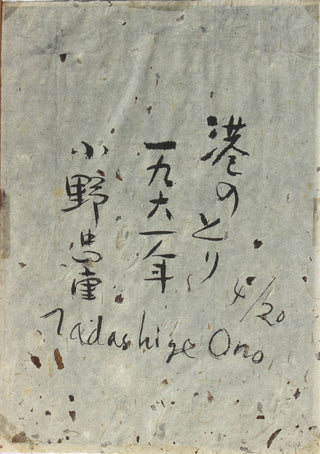 港のとり
一九六一年
小野忠重
4/20
Tadashige Ono